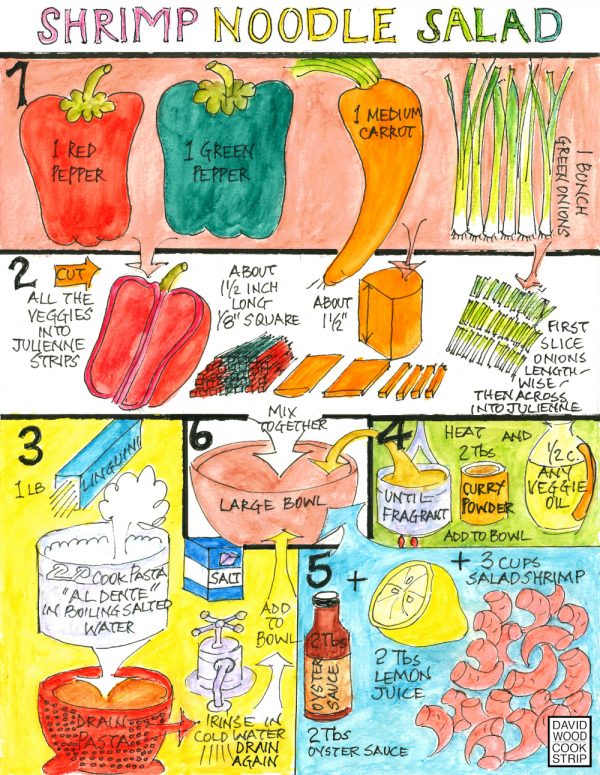 SHRIMP NOODLE SALAD
1
1 RED
PEPPER
1 GREEN
PEPPER
1 MEDIUM
CARROT
1 BUNCH
GREEN ONIONS
2
CUT
ALL THE
VEGGIES
INTO
JULIENNE
STRIPS
ABOUT
1 1/2 INCH
LONG
1/8" SQUARE
ABOUT
1 1/2"
FIRST
SLICE
ONIONS
LENGTH-
WISE-
THEN ACROSS
INTO JULIENNE
3
1 LB
LINGUINI
COOK PASTA
"AL DENTE"
IN BOILING SALTED
WATER
SALT
DRAIN
PASTA
RINSE IN
COLD WATER
DRAIN
AGAIN
ADD
TO
BOWL
6
MIX
TOGETHER
LARGE BOWL
4
HEAT AND
2 Tbs
CURRY
POWDER
1/2 C.
ANY
VEGGIE
OIL
UNTIL
FRAGRANT
ADD TO BOWL
5
+
+ 3 CUPS
SALAD SHRIMP
2 Tbs
OYSTER
SAUCE
2 Tbs
OYSTER SAUCE
2 Tbs
LEMON
JUICE
DAVID
WOOD
COOK
STRIP